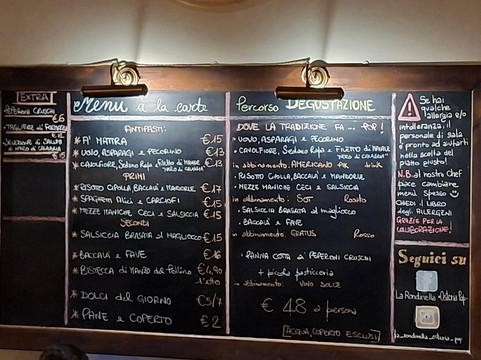 EXTRA
PEPERONI CRUSCHI
€ 6
TAGLIERE di FORMAGGI
€ 12
SELEZIONE di SALUMI
e NERO di CALABRIA
€ 15
Menu à la carte
ANTIPASTI:
* A' MATRA €15
* UOVO, ASPARAGI e PECORINO €13
* CAVOLFIORE, Sedano Rapa e Filetto di MAIALE "NERO di CALABRIA" €13
PRIMI
* RISOTTO CIPOLLA, BACCALÀ e MANDORLE €17
* SPAGHETTI Alici e CARCIOFI €15
* MEZZE MANICHE CECI e SALSICCIA €15
SECONDI
* SALSICCIA BRASATA al MAGLIOCCO €15
* BACCALÀ e FAVE €16
* BISTECCA di MANZO del Pollino €4,90
l'etto
* DOLCI del GIORNO €5/7
* PANE e COPERTO € 2
Percorso DEGUSTAZIONE
DOVE LA TRADIZIONE FA ... POP!
• UOVO, ASPARAGI e PECORINO
• CAVOLFIORE, Sedano Rapa e FILETTO di MAIALE
"NERO di CALABRIA"
in abbinamento: AMERICANO drink
• RISOTTO CIPOLLA, BACCALÀ e MANDORLE
• MEZZE MANICHE CECI e SALSICCIA
in abbinamento: Rosato
• SALSICCIA BRASATA al magliocco
• BACCALÀ e FAVE
in abbinamento: GRATUS Rosso
• PANNA COTTA ai PEPERONI CRUSCHI
+ piccola pasticceria
in abbinamento: VINO DOLCE
€ 48 a persona
[ACQUA, COPERTO ESCLUSI]
!
Se hai
qualche
allergia e/o
intolleranza il
personale di sala
è pronto ad aiutarti
nella scelta del
piatto giusto!
N.B. al nostro Chef
piace cambiare
menù spesso
CHIEDI il LIBRO
degli ALLERGENI
GRAZIE per la
COLLABORAZIONE!
Seguici su
La Rondinella Osteria Pop
la_rondinella_osteria_pop